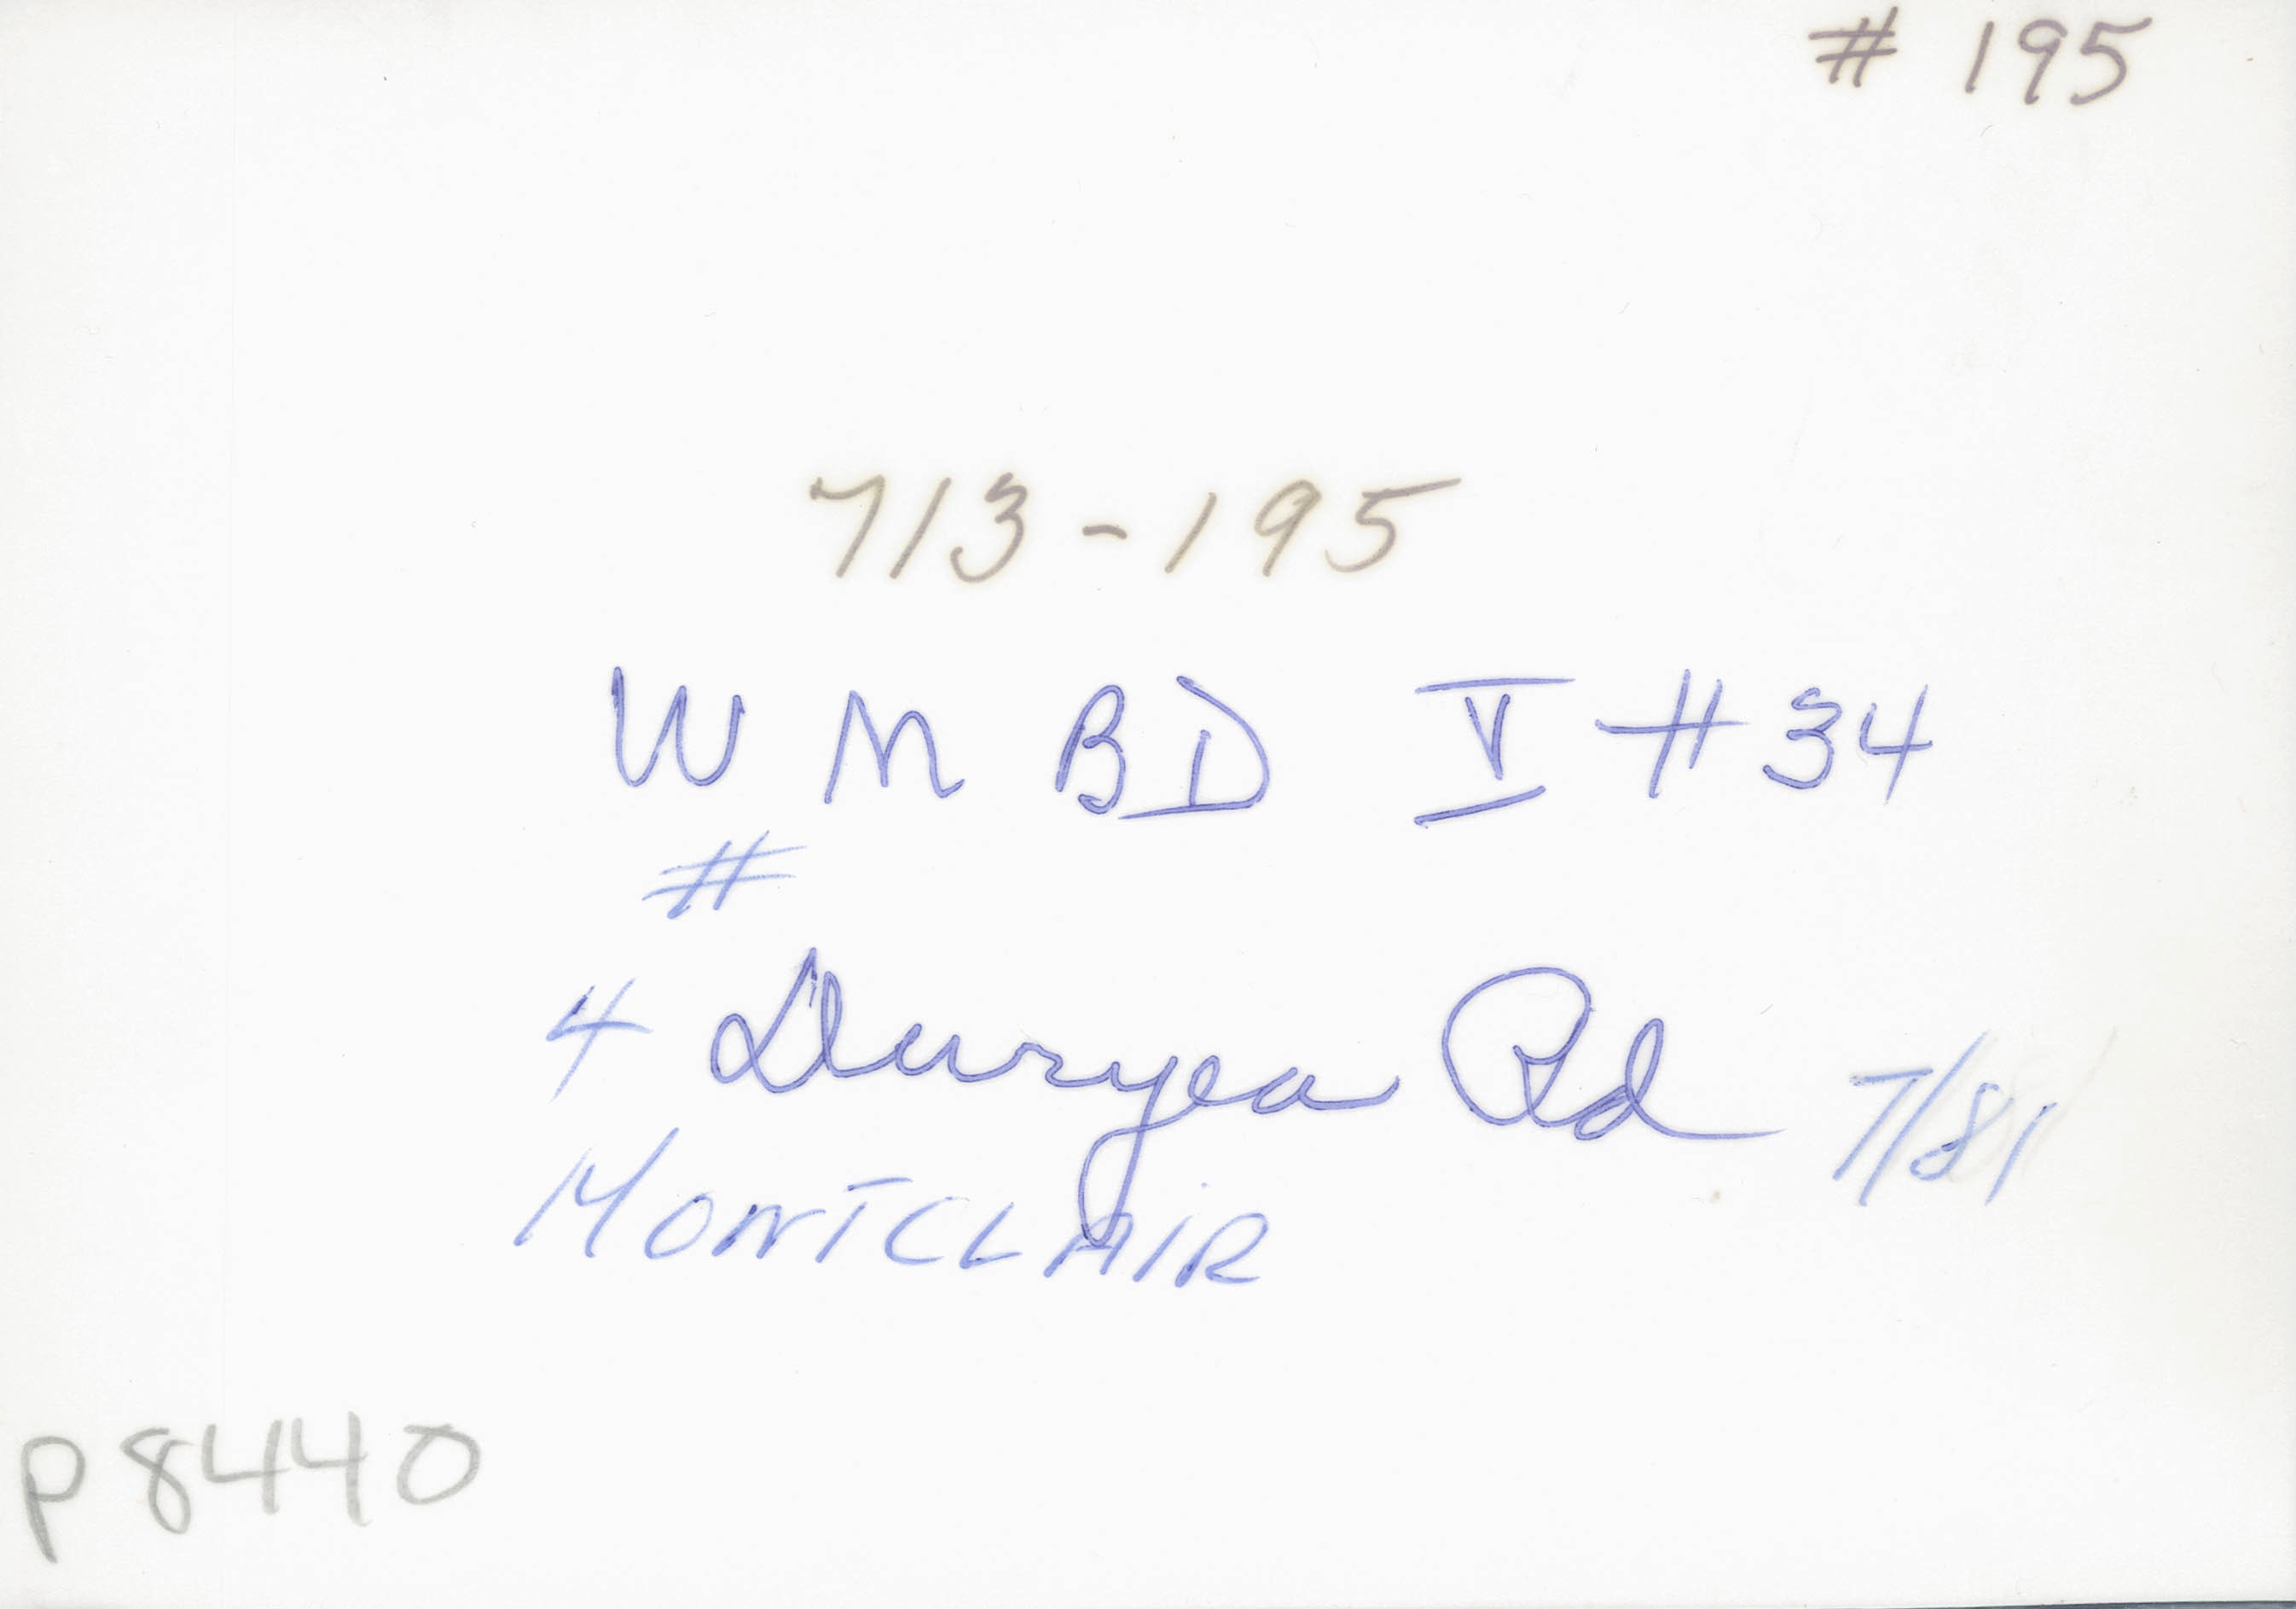 # 195
713-195
W M BD V #34
#
4 Duryea Rd 7/81
MONTCLAIR
P8440